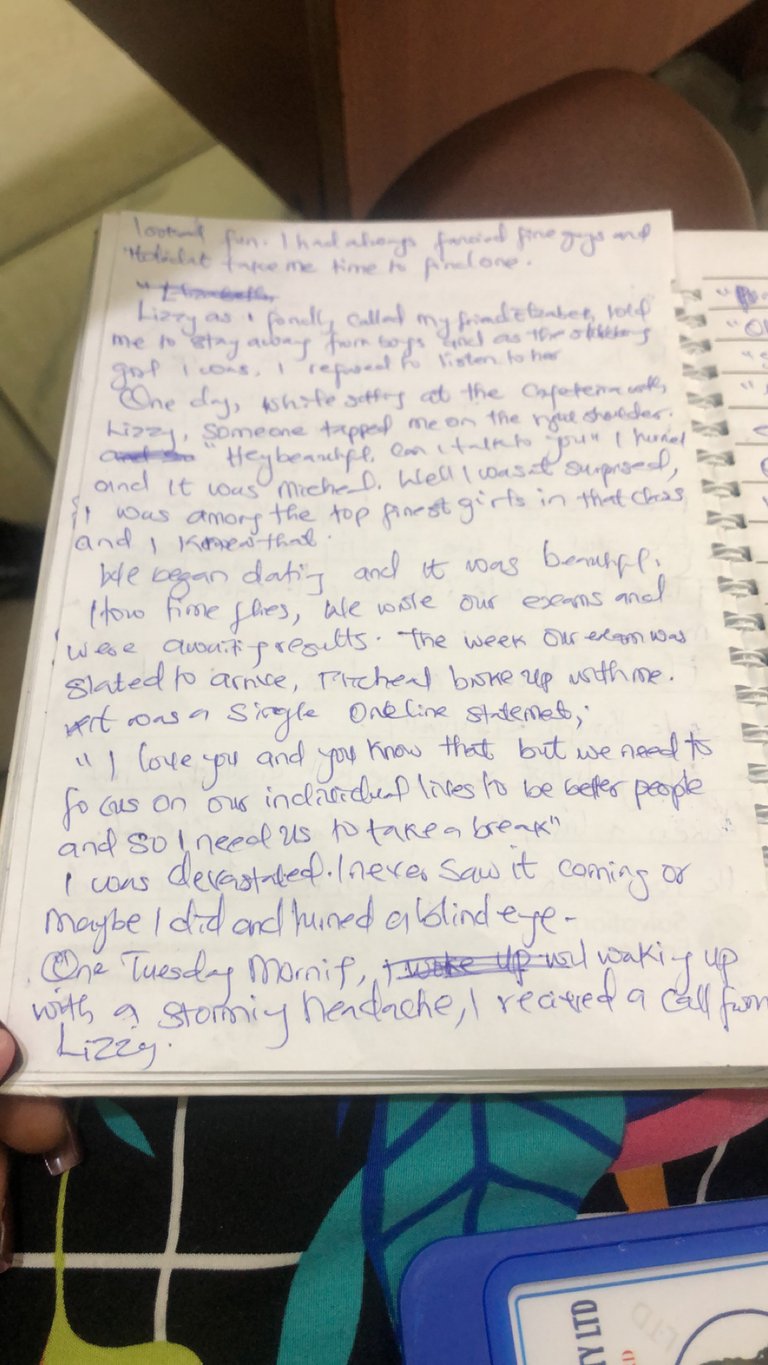 looked fun. I had always fancied fine guys and
it didn't take me time to find one.
Lizzy as I fondly called my friend Elizabeth, told
me to stay away from boys and as the stubborn
girl I was, I refused to listen to her
One day, while sitting at the cafeteria with
Lizzy, Someone tapped me on the right shoulder.
"Hey beautiful, Can I talk to you" I turned
and it was Micheal. Well I wasn't surprised,
I was among the top finest girls in that class
and I knew that.
We began dating and it was beautiful.
How time flies, We wrote our exams and
were awaiting results. The week our exam was
slated to arrive, Micheal broke up with me.
It was a Single One line statement;
"I love you and you know that but we need to
focus on our individual lives to be better people
and so I need us to take a break"
I was devastated. I never saw it coming or
Maybe I did and turned a blind eye-
One Tuesday Morning, waking up
with a storming headache, I recieved a call from
Lizzy.
TY LTD
LTD